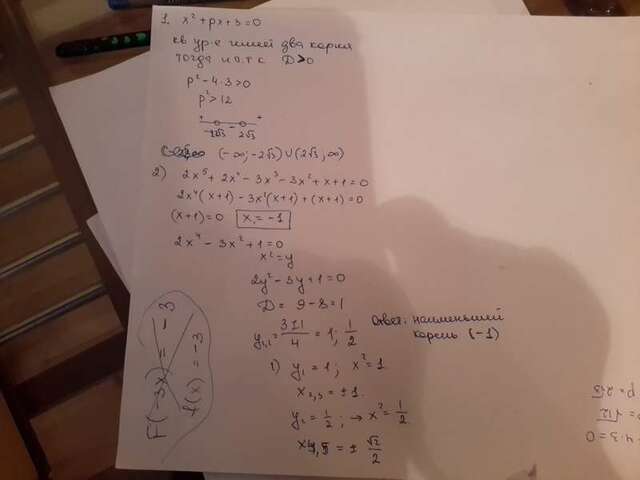 1. x² + px + 3 = 0
кв ур-е имеет два корня
тогда и т.т.с D > 0
p² - 4·3 > 0
p² > 12
+ - +
-2√3 2√3
(-∞; -2√3) ∪ (2√3; ∞)
2) 2x⁵ + 2x⁴ - 3x³ - 3x² + x + 1 = 0
2x⁴(x+1) - 3x²(x+1) + (x+1) = 0
(x+1) = 0 x₁ = -1
2x⁴ - 3x² + 1 = 0
x² = y
2y² - 3y + 1 = 0
D = 9 - 8 = 1
y₁,₂ = 3±1/4 = 1; 1/2
Ответ: наименьший
корень (-1)
1) y₁ = 1; x² = 1
x₂,₃ = ±1.
y₂ = 1/2; → x² = 1/2.
x₄,₅ = ± √2/2
F(-3x) = -3
f(x) = -3
4·3 = 0
= √12
p = 2√3